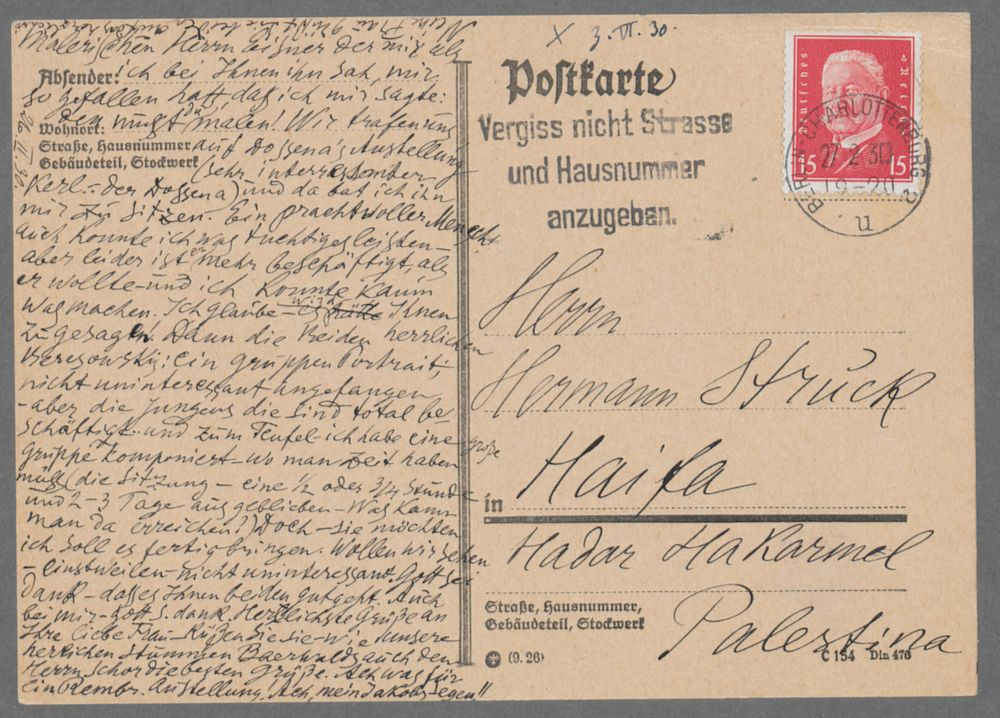 Meine Frau grüßt Sie beide
Malerischen Herrn Eisner der mir als
ich bei Ihnen ihn sah, mir
so gefallen hat, daß ich mir sagte:
den mußt du malen! Wir trafen uns
auf Dossena's Austellung
(sehr interessanter
Kerl - der Dossena) und da bat ich ihn
mir zu sitzen. Ein prachtvoller Mensch
auch konnte ich was tuchtiges leisten -
aber leider ist er mehr beschäftigt, als
er wollte - und ich konnte kaum
was machen. Ich glaube - es wird Ihnen
zugesagen. Dann die Beiden herrlichen
Beresowsky: ein gruppen Portrait,
nicht uninteressant angefangen
- aber die Jungens die sind total be
schäftigt - und zum Teufel - ich habe eine große
gruppe komponiert - wo man Zeit haben
muß (die Sitzung - eine 1/2 oder 3/4 Stunde
und 2 - 3 Tage ausgeblieben - Was kann
man da erreichen?) Doch - sie möchten
ich soll es fertig bringen. Wollen wir sehen
- einstweilen - nicht uninteressant. Gott sei
dank - daß es Ihnen beiden gut geht. Auch
bei mir - Gott s. dank. Herzlichste Grüße an
Ihre liebe Frau - Küßen die sie - wie unsere
herlichen stummen Baerwalds auch den
Herrn Schor die besten Grüße. Ach was für
ein Rembr. Austellung. Ach, mein Jakobs segen!!
26. II. 30.
Absender:
Wohnort:
Straße, Hausnummer
Gebäudeteil, Stockwerk
X 3. VI. 30.
Postkarte
Vergiss nicht Strasse
und Hausnummer
anzugeben.
Deutsches Reich
15 15
BERLIN-CHARLOTTENBURG 2
27.2.30
19-20
u
Herrn
Hermann Struck
in Haifa
Hadar HaKarmel
Palestina
Straße, Hausnummer,
Gebäudeteil, Stockwerk
(9. 26)
C 154 Din 476